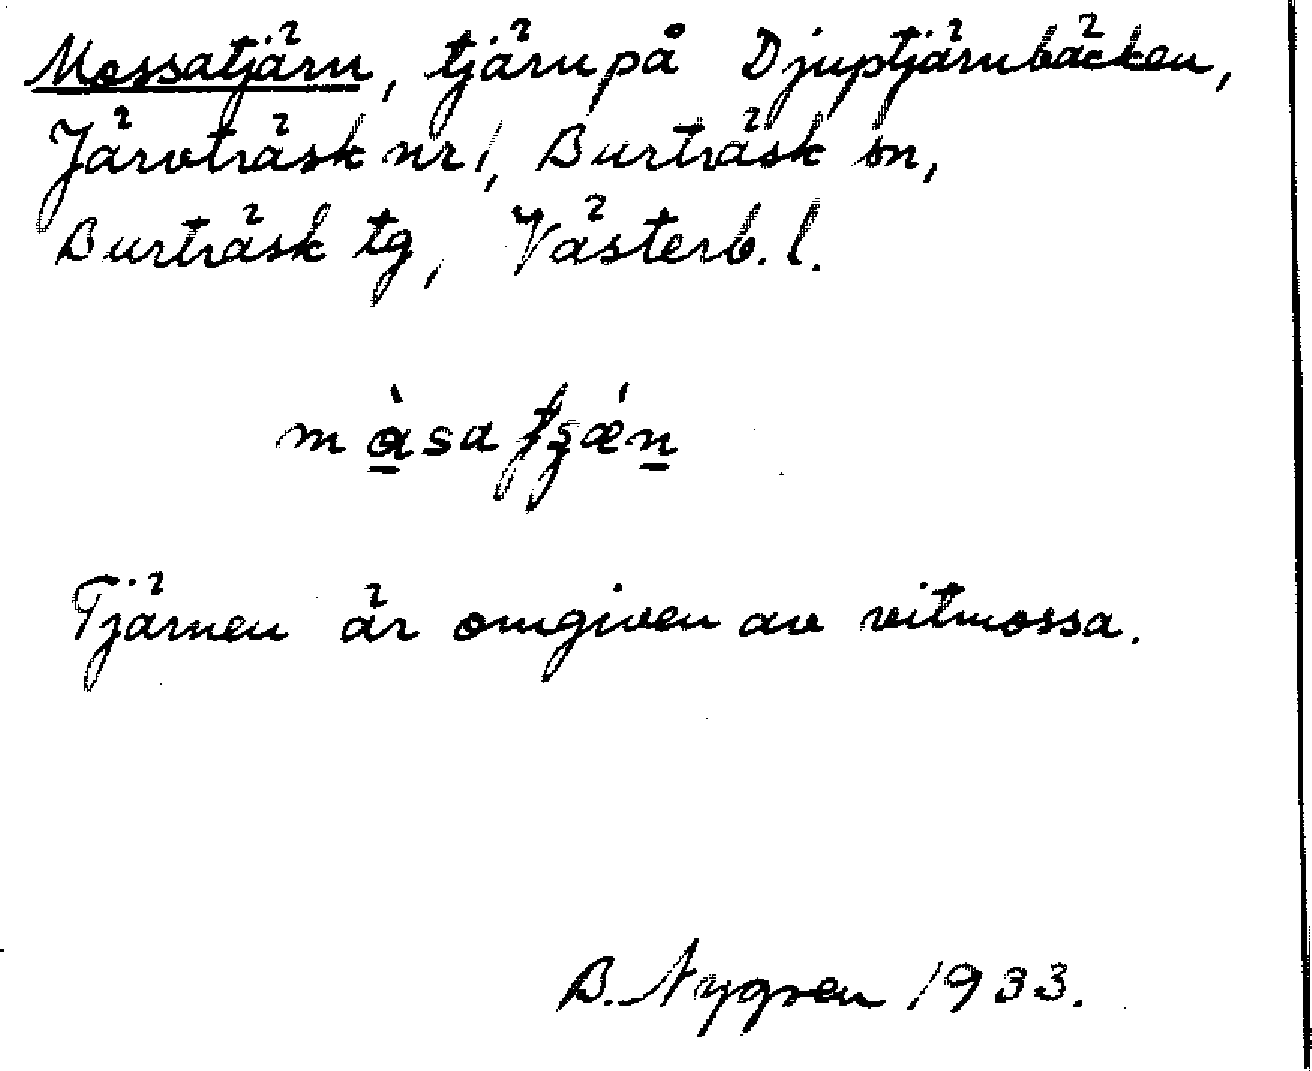 Mossatjärn, tjärn på Djuptjärnbäcken,
Järvträsk nr 1, Burträsk sn,
Burträsk tg, Västerb. l.
Tjärnen är omgiven av vitmossa.
B. Nygren 1933.